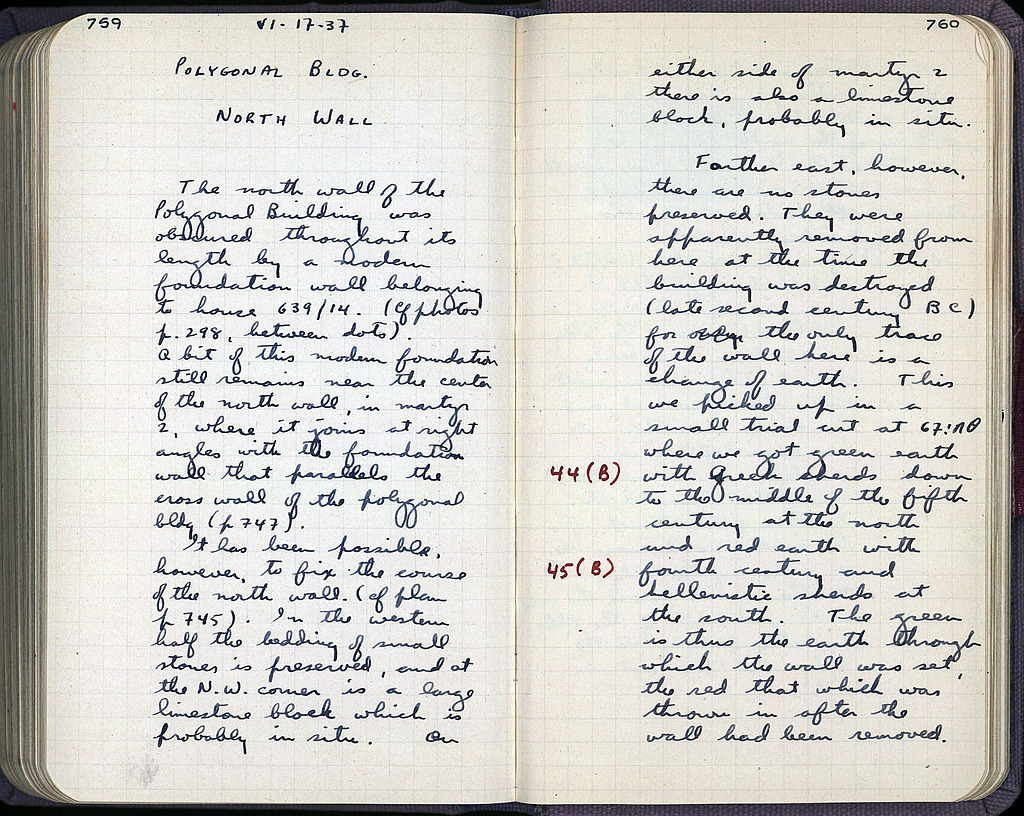 759
VI-17-37
POLYGONAL BLDG.
NORTH WALL
The north wall of the
Polygonal Building was
obscured throughout its
length by a modern
foundation wall belonging
to house 639/14. (Cf photos
p. 298, between dots).
A bit of this modern foundation
still remains near the center
of the north wall, in martyr
2, where it joins at right
angles with the foundation
wall that parallels the
cross wall of the polygonal
bldg (p 747).
It has been possible,
however, to fix the course
of the north wall. (cf plan
p 745). In the western
half the bedding of small
stones is preserved, and at
the N.W. corner is a large
limestone block which is
probably in situ. On
760
either side of martyr 2
there is also a limestone
block, probably in situ.
Farther east, however,
there are no stones
preserved. They were
apparently removed from
here at the time the
building was destroyed
(late second century BC)
for the only trace
of the wall here is a
change of earth. This
we picked up in a
small trial cut at
where we got green earth
44(B) with Greek sherds down
to the middle of the fifth
century at the north
and red earth with
45(B) fourth century and
hellenistic sherds at
the south. The green
is thus the earth through
which the wall was set,
the red that which was
thrown in after the
wall had been removed.